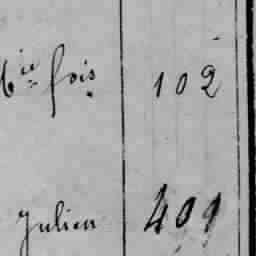 6ie fois 102
Julien 409